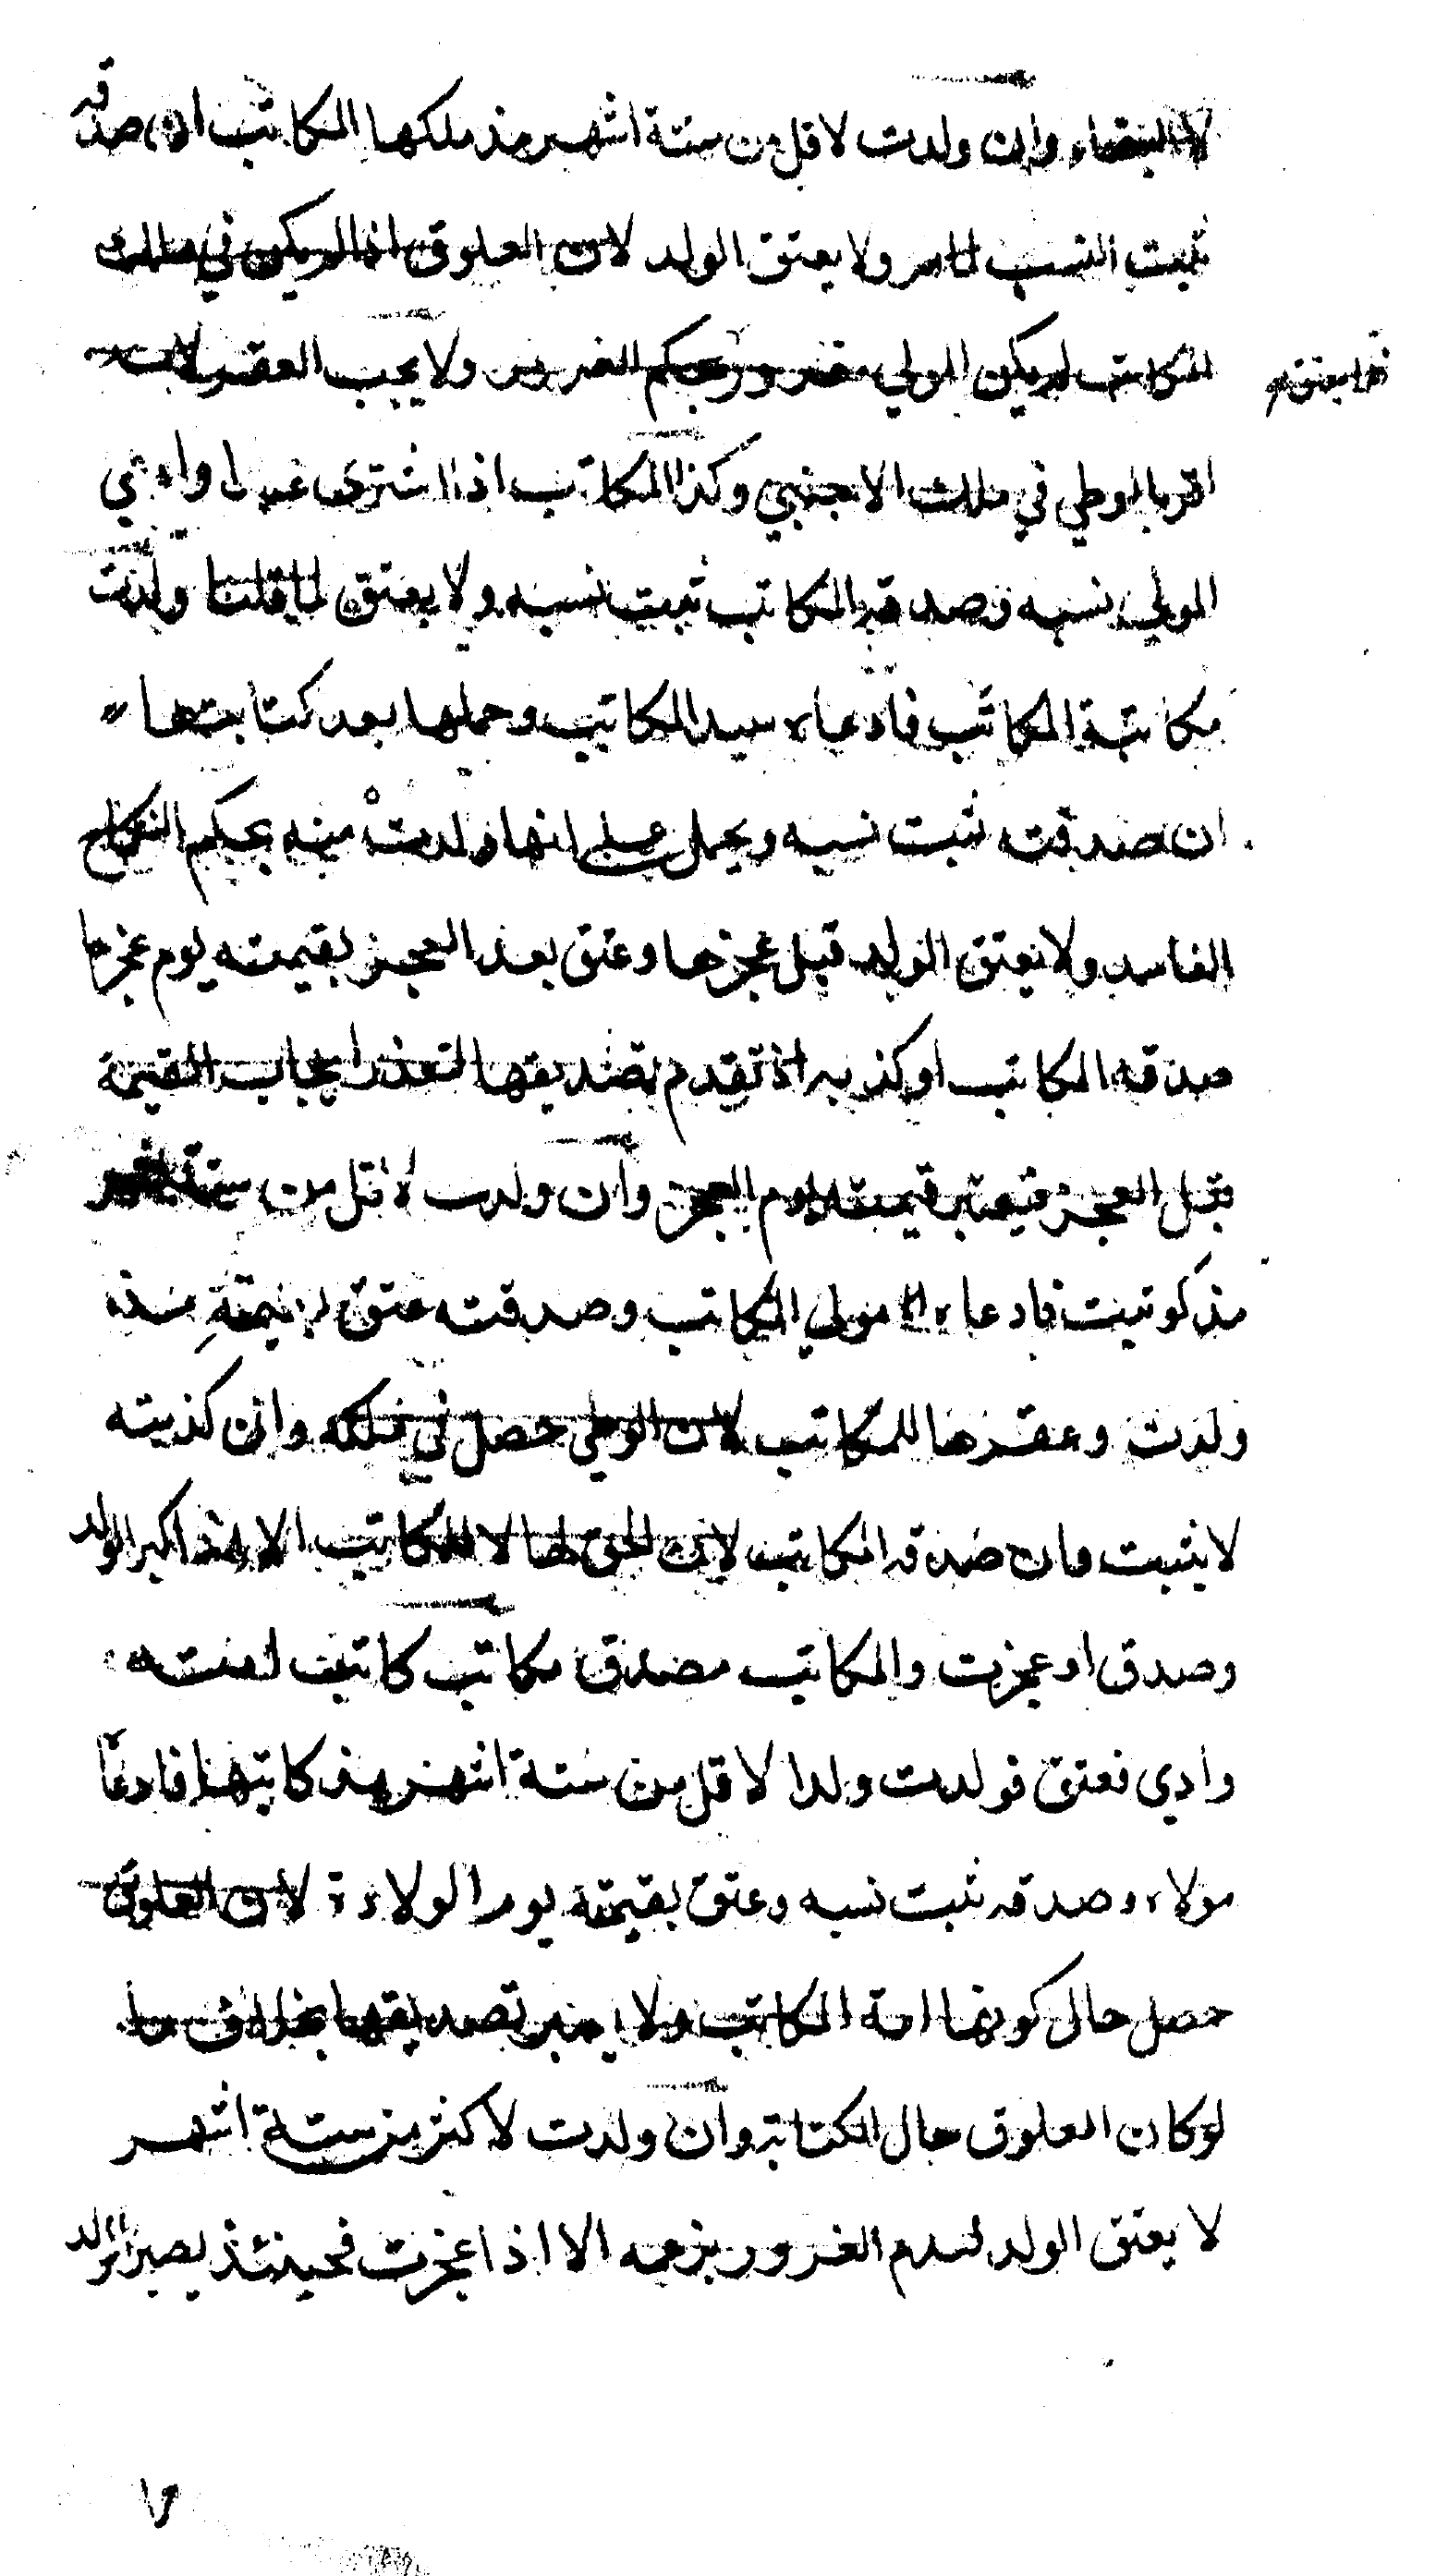 وان ولدت لاقل من ستة اشهر مذ ملكها المكاتب ان صدقه
ثبت النسب لما مر ولا يعتق الولد لان العلوق اذا لم يكن في ملك
المكاتب لم يكن المولي مغرورا بحكم الغرور ولا يجب العقر لانه
فلا يعتق
اقر بالوطي في ملك الاجنبي وكذا المكاتب اذا اشتري عبدا وادعي
المولي نسبه وصدقه المكاتب ثبت نسبه ولا يعتق لما قلنا ولدت
مكاتبة المكاتب فادعاه سيد المكاتب وحملها بعد كتابتها
ان صدقته ثبت نسبه ويحمل علي انها ولدت منه بحكم النكاح
الفاسد ولا يعتق الولد قبل عجزها وعتق بعد العجز بقيمته يوم عجزها
صدقه المكاتب او كذبه اذ تقدم تصديقها لتعذر ايجاب القيمة
قبل العجز فيعتبر قيمته يوم العجز وان ولدت لاقل من ستة اشهر
مذ كوتبت فادعاه مولي المكاتب وصدقته عتق بقيمته مذ
ولدت وعقرها للمكاتب لان الوطي حصل في ملكه وان كذبته
لا يثبت وان صدقه المكاتب لان الحق لها لا للمكاتب الا اذا كبر الولد
وصدق او عجزت والمكاتب مصدق مكاتب كاتب امته
وادي فعتق فولدت ولدا لاقل من ستة اشهر مذ كاتبها فادعا
مولاه وصدقه ثبت نسبه وعتق بقيمته يوم الولادة لان العلوق
حصل حال كونها امة المكاتب ولا يعتبر تصديقها بخلاف ما
لو كان العلوق حال الكتابة وان ولدت لاكثر من ستة اشهر
لا يعتق الولد لعدم الغرور بزعمه الا اذا عجزت فحينئذ يصير الولد